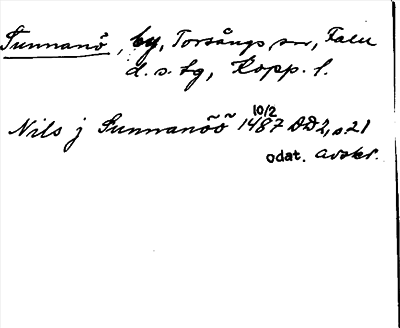 Sunnanö, by, Torsångs sn, Falu
d. s. tg, Kopp. l.
10/2
Nils j Sunnanõõ 1487 DD2, s 21
odat. avskr.